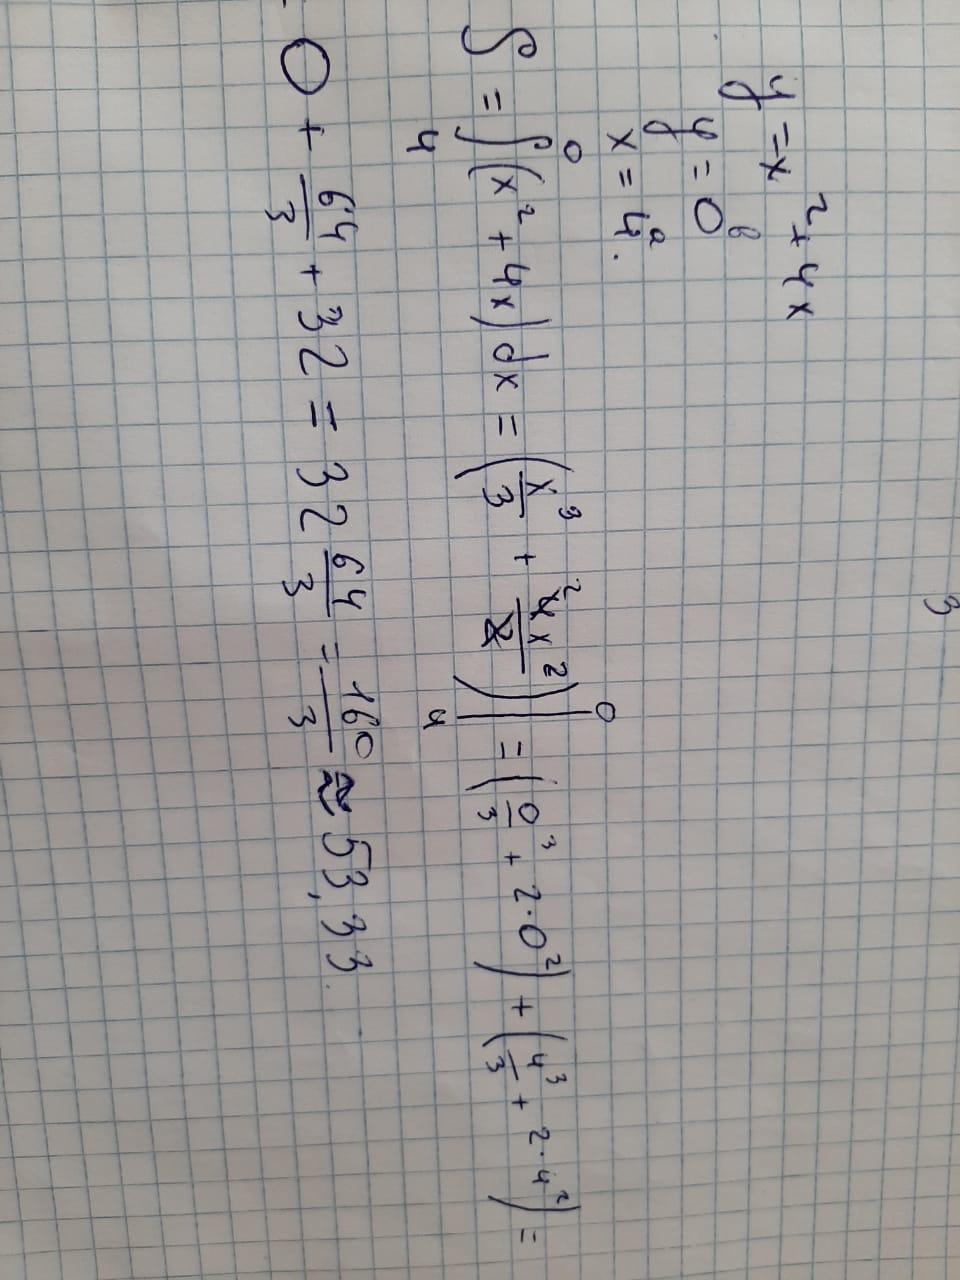 3
y = x² + 4x
y = 0 b
x = 4 a.
S = ∫₄⁰ (x² + 4x) dx = (x³/3 + 4x²/2 2)|₄⁰ = (0³/3 + 2·0²) + (4³/3 + 2·4²) =
0 + 64/3 + 32 = 32 64/3 = 160/3 ≈ 53,33.